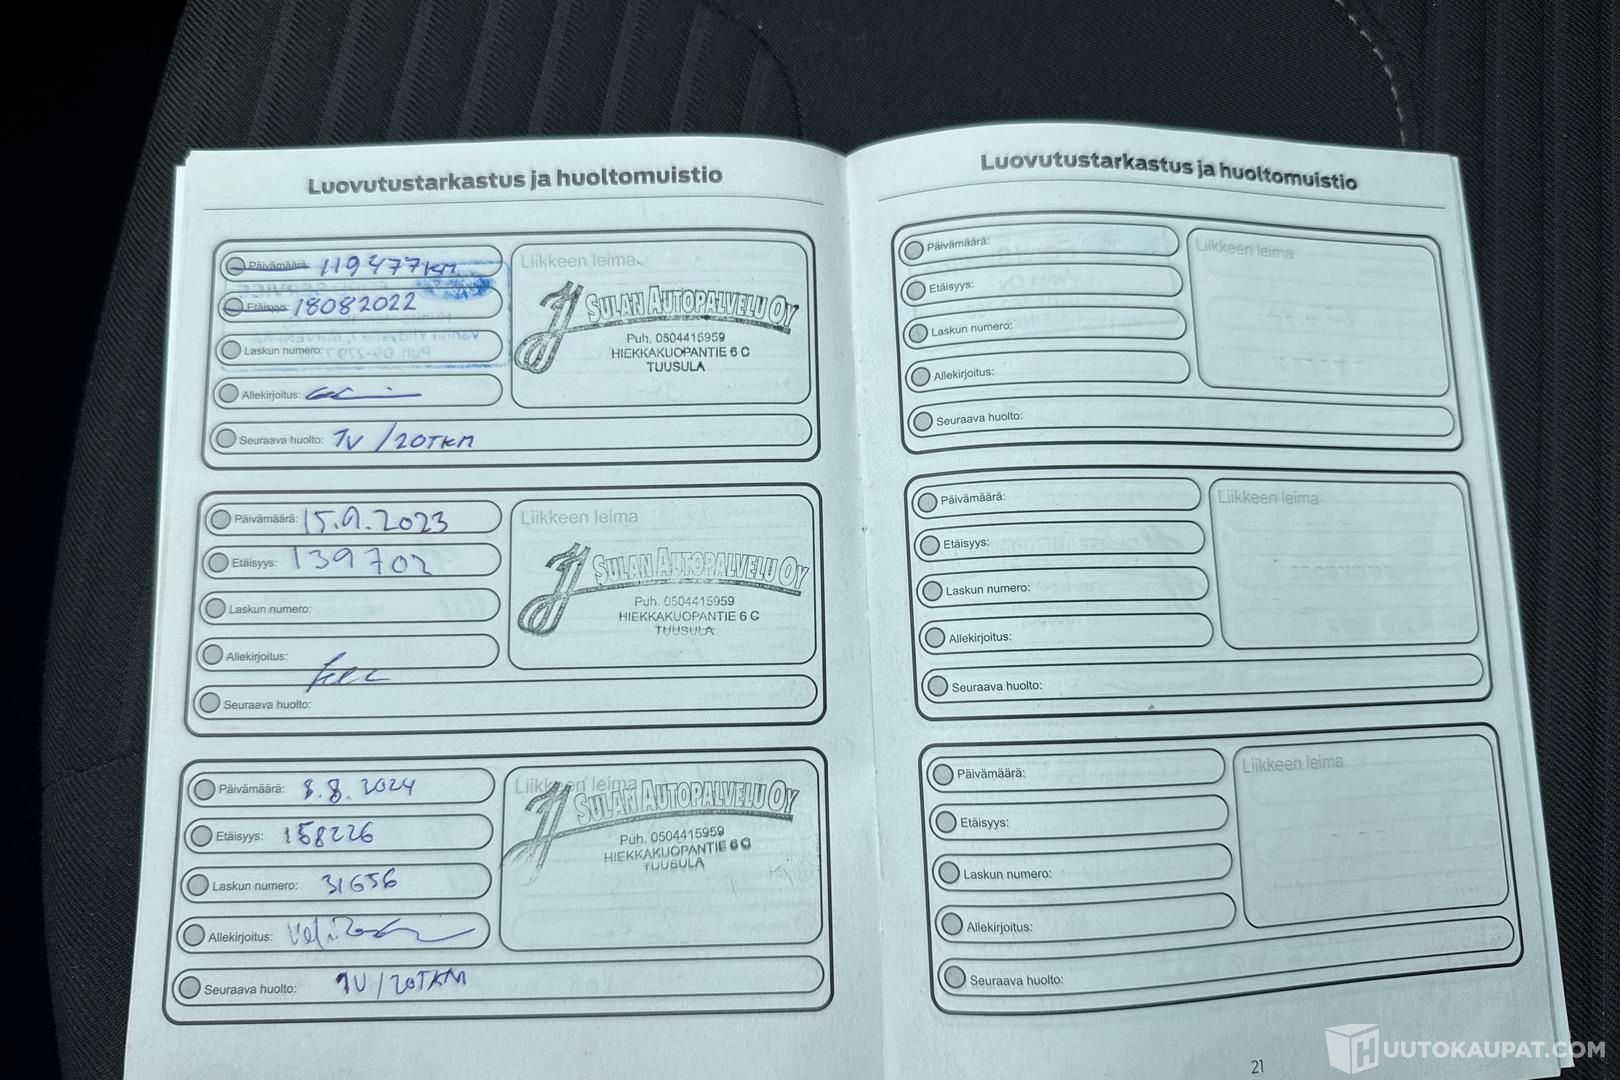 Luovutustarkastus ja huoltomuistio
Päivämäärä: 119477KM
Etäisyys: 18082022
Laskun numero:
Allekirjoitus:
Seuraava huolto: 1V/20TKM
Liikkeen leima
SULAN AUTOPALVELU OY
Puh. 0504415959
HIEKKAKUOPANTIE 6 C
TUUSULA
Päivämäärä: 15.9.2023
Etäisyys: 139702
Laskun numero:
Allekirjoitus:
Seuraava huolto:
Liikkeen leima
SULAN AUTOPALVELU OY
Puh. 0504415959
HIEKKAKUOPANTIE 6 C
TUUSULA
Päivämäärä: 8.8.2024
Etäisyys: 158226
Laskun numero: 31656
Allekirjoitus:
Seuraava huolto: 1V/20TKM
Liikkeen leima
SULAN AUTOPALVELU OY
Puh. 0504415959
HIEKKAKUOPANTIE 6 C
TUUSULA
Luovutustarkastus ja huoltomuistio
Päivämäärä:
Etäisyys:
Laskun numero:
Allekirjoitus:
Seuraava huolto:
Liikkeen leima
Päivämäärä:
Etäisyys:
Laskun numero:
Allekirjoitus:
Seuraava huolto:
Liikkeen leima
Päivämäärä:
Etäisyys:
Laskun numero:
Allekirjoitus:
Seuraava huolto:
Liikkeen leima
21
HUUTOKAUPAT.COM